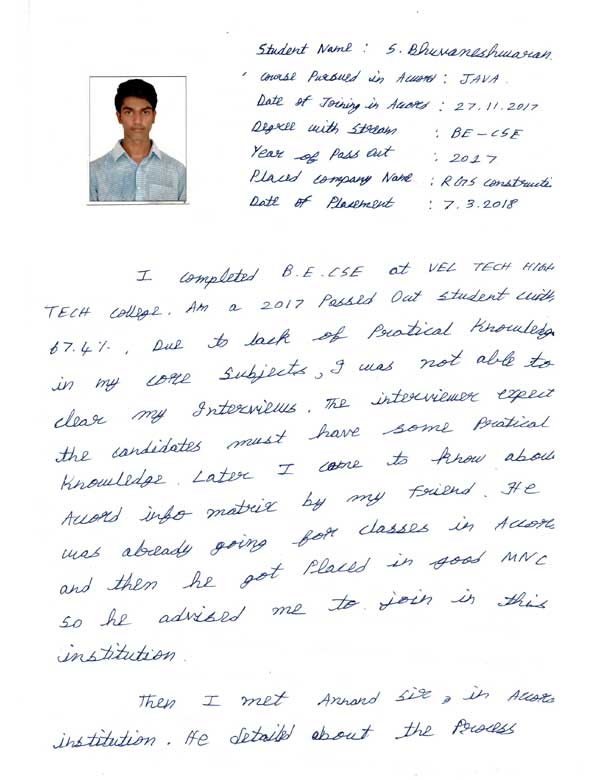 Student Name : S. Bhuvaneshwaran
Course Pursued in Accord : JAVA
Date of Joining in Accord : 27.11.2017
Degree with Stream : BE-CSE
Year of Pass Out : 2017
Placed Company Name : Constructi
Date of Placement : 7.3.2018
I completed B.E.CSE at VEL TECH HIGH
TECH college. Am a 2017 Passed Out student with
67.4%. Due to lack of Pratical Knowledge
in my core subjects, I was not able to
clear my Interviews. The interviewer expect
the candidates must have some Pratical
Knowledge. Later I came to know about
Accord info matrix by my friend. He
was already going for classes in Accord
and then he got Placed in good MNC
so he advised me to join in this
institution.
Then I met Annand sir, in Accord
institution. He detailed about the Process